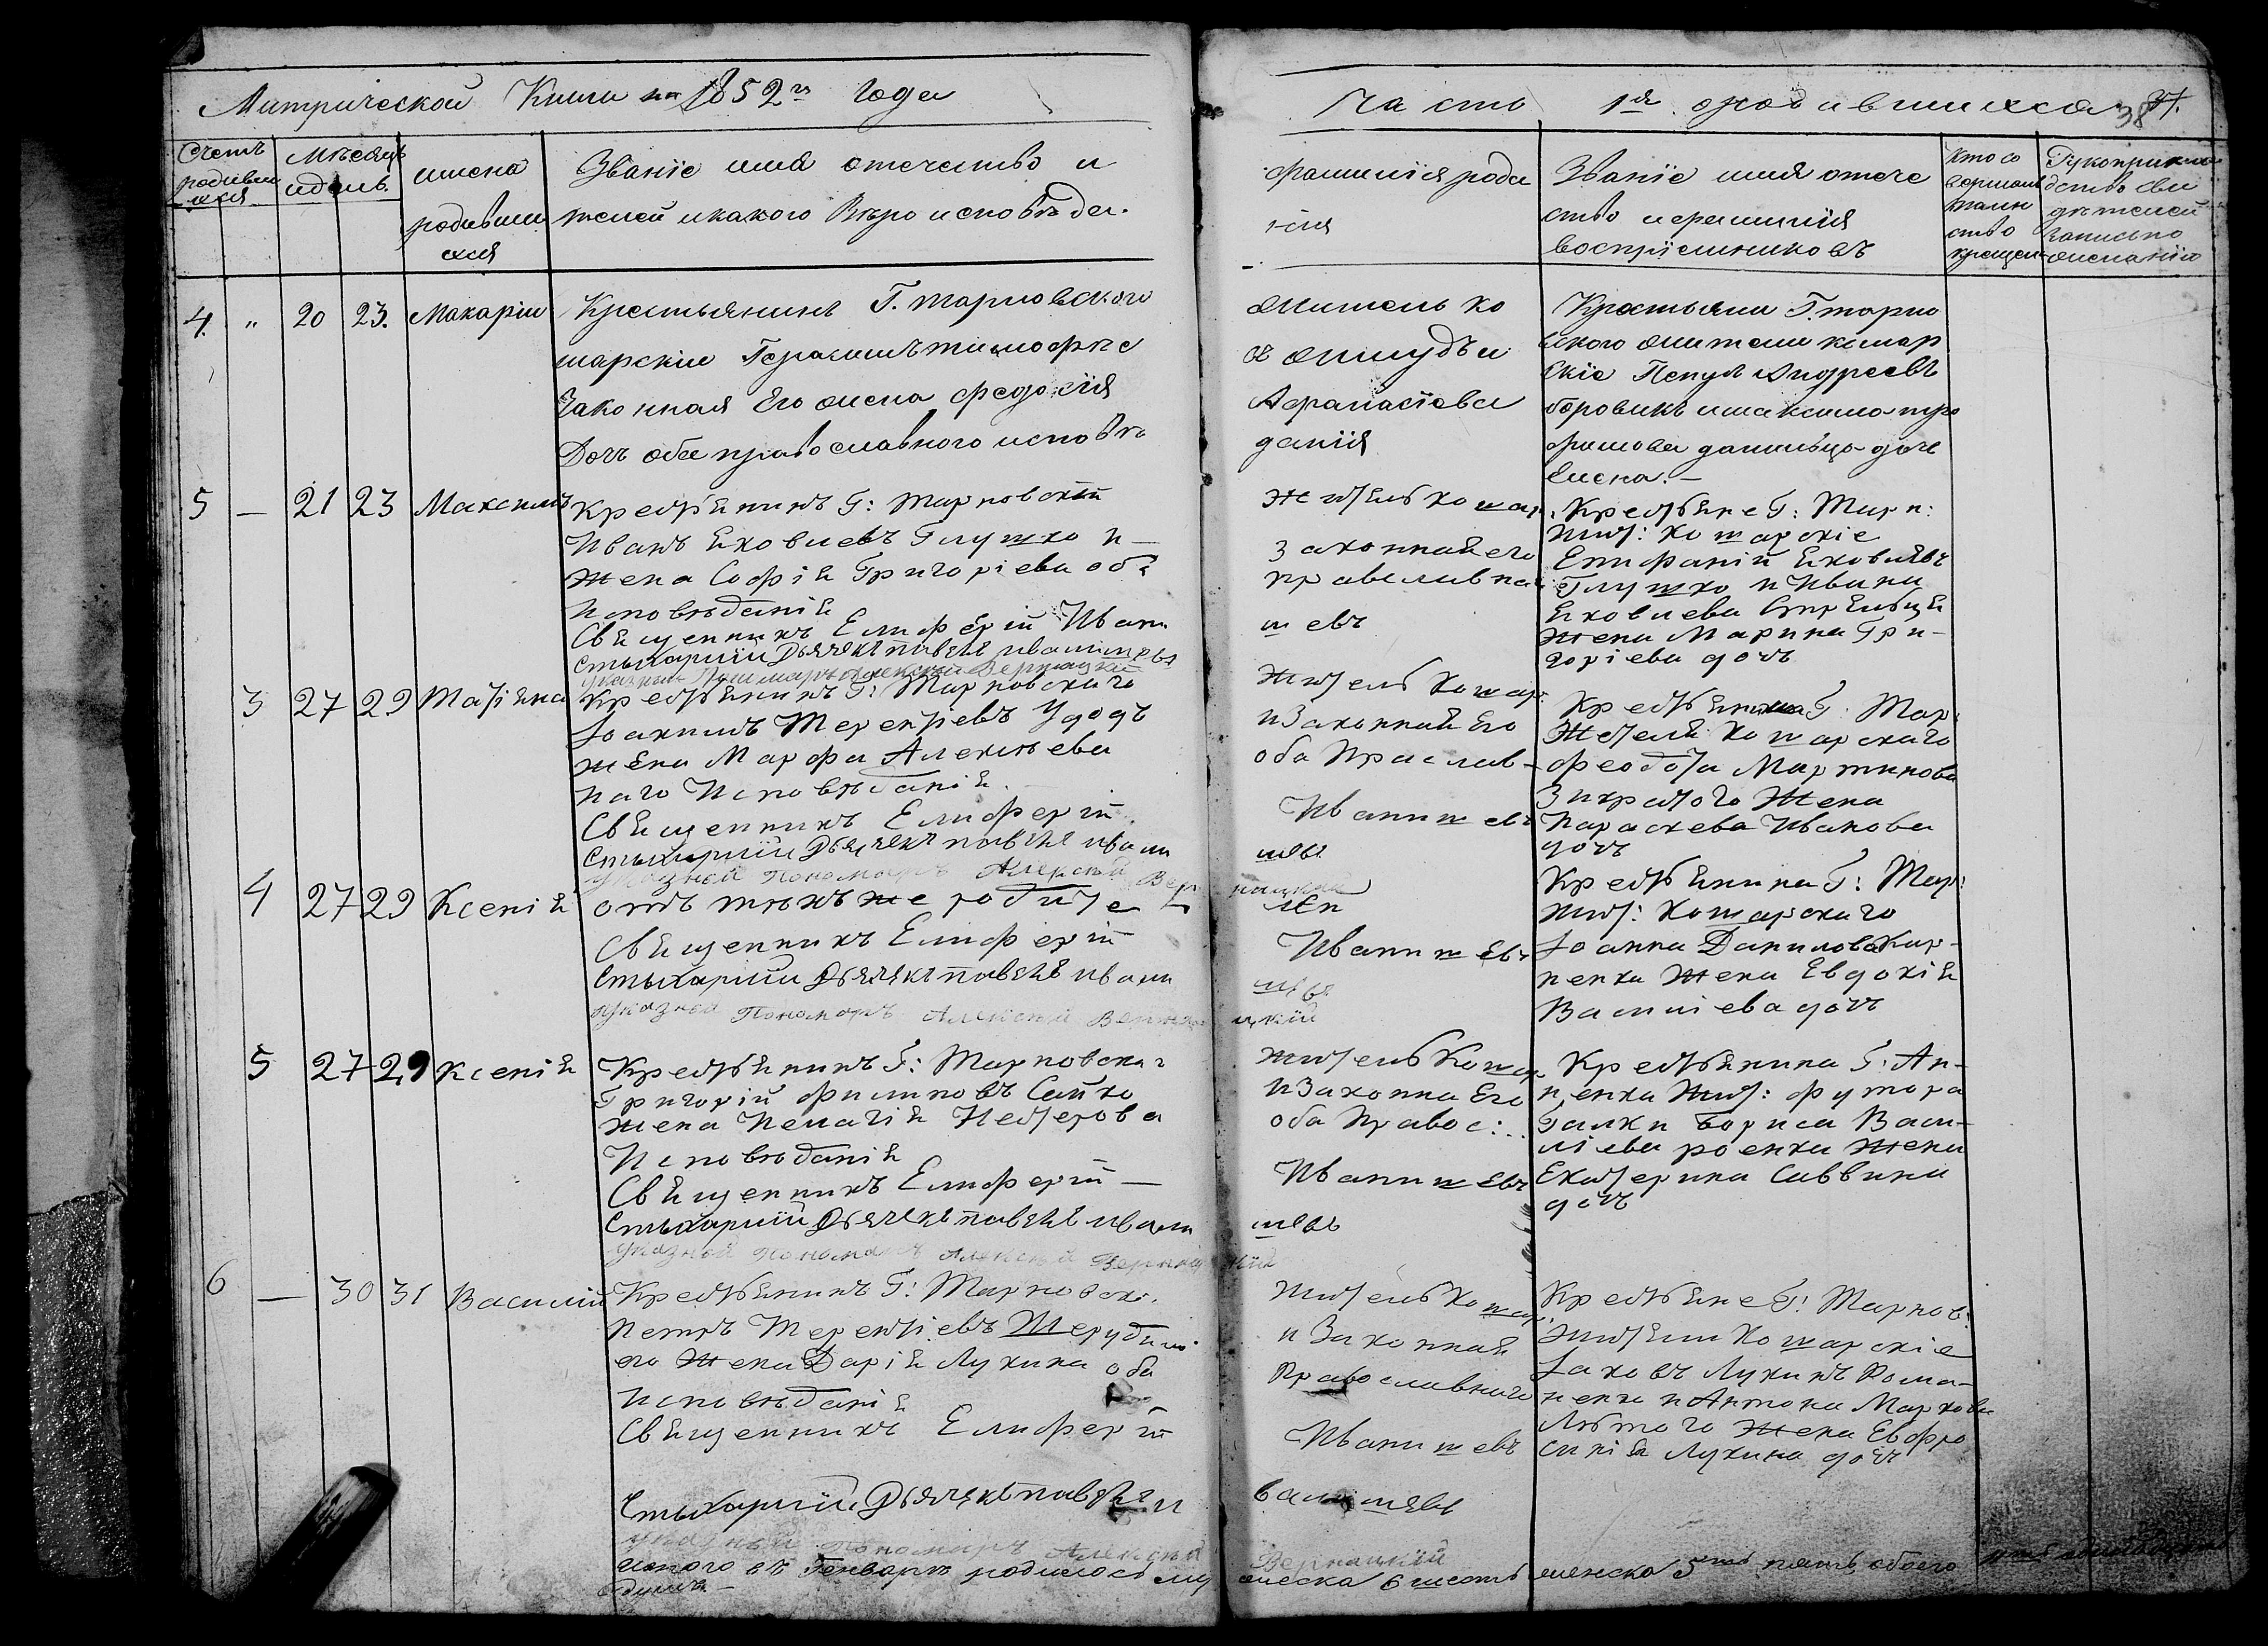 Митрической Книги на 1852го Года
Часть 1я о родившихся 38
Счетъ родивших ся
Мѣсяцъ и день
имена родивши ся
Званіе имя отечество и
телей и какого Вѣро исповѣда
фамилія роди
нія
Званіе имя отече
ство и фамилія
воспріемниковъ
Кто со вершалъ таин ство крещен
Рукоприкла дство сви дѣтелей записи по желанію
4. " 20 23. Макарій
Крестьянинъ Г. Тарновского
шарскій Герасимъ Тимофѣе
Законная Его жена Феодосія
Дочь оба православного исповѣ
житель ко
Афанасіева
данія
Крестьяни Г. тарно
вского жители кошар
скіе Андреевъ
боровикъ
жена. —
5 — 21 23 Максимъ
Крестьянинъ Г: Тарновскій
Иванъ Яковлевъ Глушко и —
Жена Софія Григоріева оба
Исповѣданія
Священникъ Елиферій Ивани
Стыхарній Дьячекъ павелъ иванишевъ
Житель кошар:
законная его
православна
шевъ
Крестьяне Г: Тарн:
Жит: Кошарскіе
Епифаній Яковлевъ
Глушко и Ивана
Яковлева Стрельця
Жена Марина Гри-
горіева дочь
3 27 29 Татіяна
Крестьянинъ Г: Тарновскаго
Іоакимъ Терентіевъ Удодъ
Жена Марфа Алексѣева
наго Исповѣданія.
Священникъ Елиферій.
Стыхарній Дьячекъ павелъ ивани
Указной Пономарь Алексѣй Вер
Житель Кошар:
и Законная Его
оба Праслав-
Иванишевъ
шевъ
нацкій
Крестьянина Г: Тар:
Жителя Кошарскаго
Феодота Мартинова
Жена
Параскева Иванова
дочь
4 27 29 Ксенія
отъ тѣхъ же родите
Священникъ Елиферій
Стыхарній Дьячекъ павелъ ивани
Указной Пономарь Алексѣй Верна
лей
Иванишевъ
шевъ
цкій
Крестьянина Г: Тар:
Жит: Кошарскаго
Іоанна Данилова Кар-
пенка Жена Евдокія
Василіева дочь
5 27 29 Ксенія
Крестьянинъ Г: Тарновска:
Григорій Филиповъ Сайко
Жена Пелагія Нестерова
Исповѣданія
Священникъ Елиферій —
Стыхарній Дьячекъ павелъ ивани
Указной Пономарь Алексѣй Вернац
Житель Кошар
и Законна Его
оба Правос:
Иванишевъ
шевъ
кій
Крестьянина Г: Ан-
ценка Жит: футора
Галки Бориса Васи-
ліева роенка Жена
Екатерина Саввина
дочь
6 — 30 31 Василій
Крестьянинъ Г: Тарновско.
Петръ Терентіевъ
его Жена Дарія Лукина оба
Исповѣданія
Священникъ Елиферій
Стыхарній Дьячекъ павелъ и
Указной Пономарь Алексѣй
Житель Кошар.
и Законная
Православнаго
Иванишевъ
ванишевъ
Вернацкій
Крестьяне Г: Тарнов:
Жители Кошарскіе
Іаковъ Лукинъ Рома-
ненко и Антона Маркова
Лютого Жена Евфро
синія Лукина дочь
итого въ Генварѣ родилось му жеска 6 шесть женска 5ть пять обоего